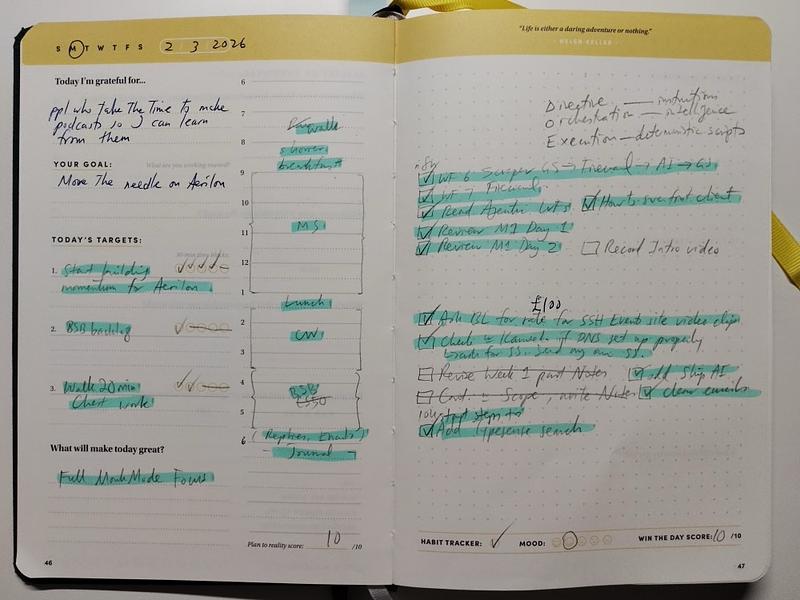 S M T W T F S 2 3 2026
Today I'm grateful for...
ppl who take the time to make
podcasts so I can learn
from them
YOUR GOAL: What are you working toward?
Move the needle on Aerilon
TODAY'S TARGETS:
1. Start building
momentum for Aerilon
2. BSB backlog
3. Walk 20 min
Chest work
What will make today great?
Full MonkMode Focus
46
6
7
walk
8 shower
breakfast
9
10
11 MS
12
1 Lunch
2
CW
3
4
BSB
5
6 (Replies, Emails)
Journal
Plan to reality score: 10 /10
"Life is either a daring adventure or nothing."
- HELEN KELLER -
Directive — instructions
Orchestration — intelligence
Execution — deterministic scripts
n8n
WF 6 Scraper GS → Firecrawl → AI → GS
WF 7 Firecrawl
Read Agentic
How to
first client
Review M1 Day 1
Review M1 Day 2
Record Intro video
£100
Ask BL for rate for SSH Events site video clips
Check
if DNS set up properly
SS. Send my own SS.
Revise Week 1 past Notes
add Skip AI
Cont. Scope, write Notes
clear emails
steps to
Add Typesense search
HABIT TRACKER: ✓ MOOD: WIN THE DAY SCORE: 10 /10
47